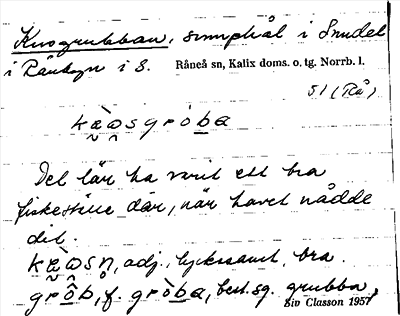 Knosgrubban, sumphål i Inndel
i Rånbyn i S. Råneå sn, Kalix doms. o. tg. Norrb. l.
51 (Rå)
kæ̀ωsgróba
Det lär ha varit ett bra
fiskeställe där, när havet nådde
dit.
kæ̀ωsn̥, adj. lyckosamt, bra.
grôb, f. gròba, best. sg. grubba,
Siv Classon 1957